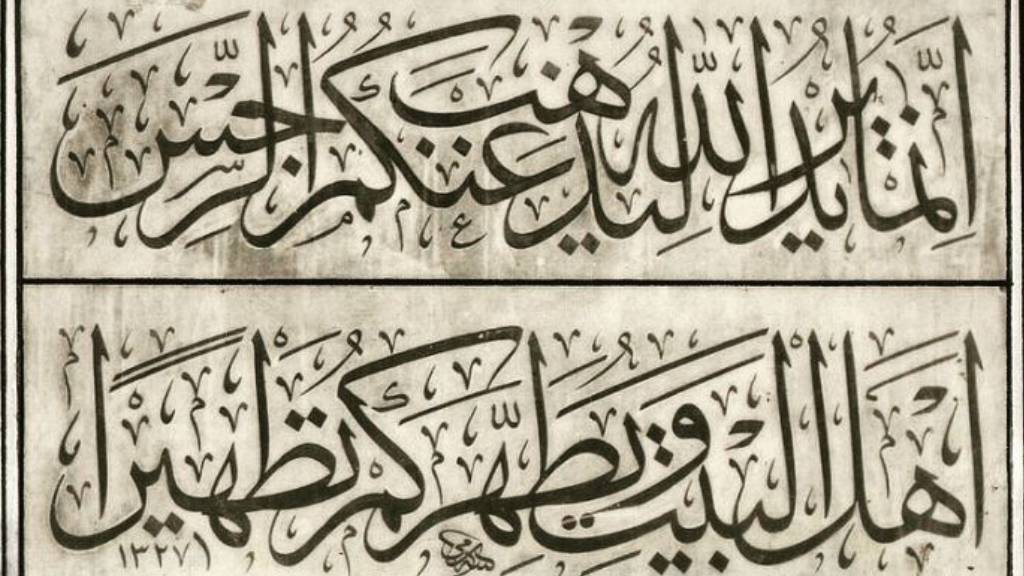 اِنَّمَا يُرِيدُ اللّٰهُ لِيُذْهِبَ عَنْكُمُ الرِّجْسَ
اَهْلَ الْبَيْتِ وَيُطَهِّرَكُمْ تَطْهِيرًا
١٣٢٧